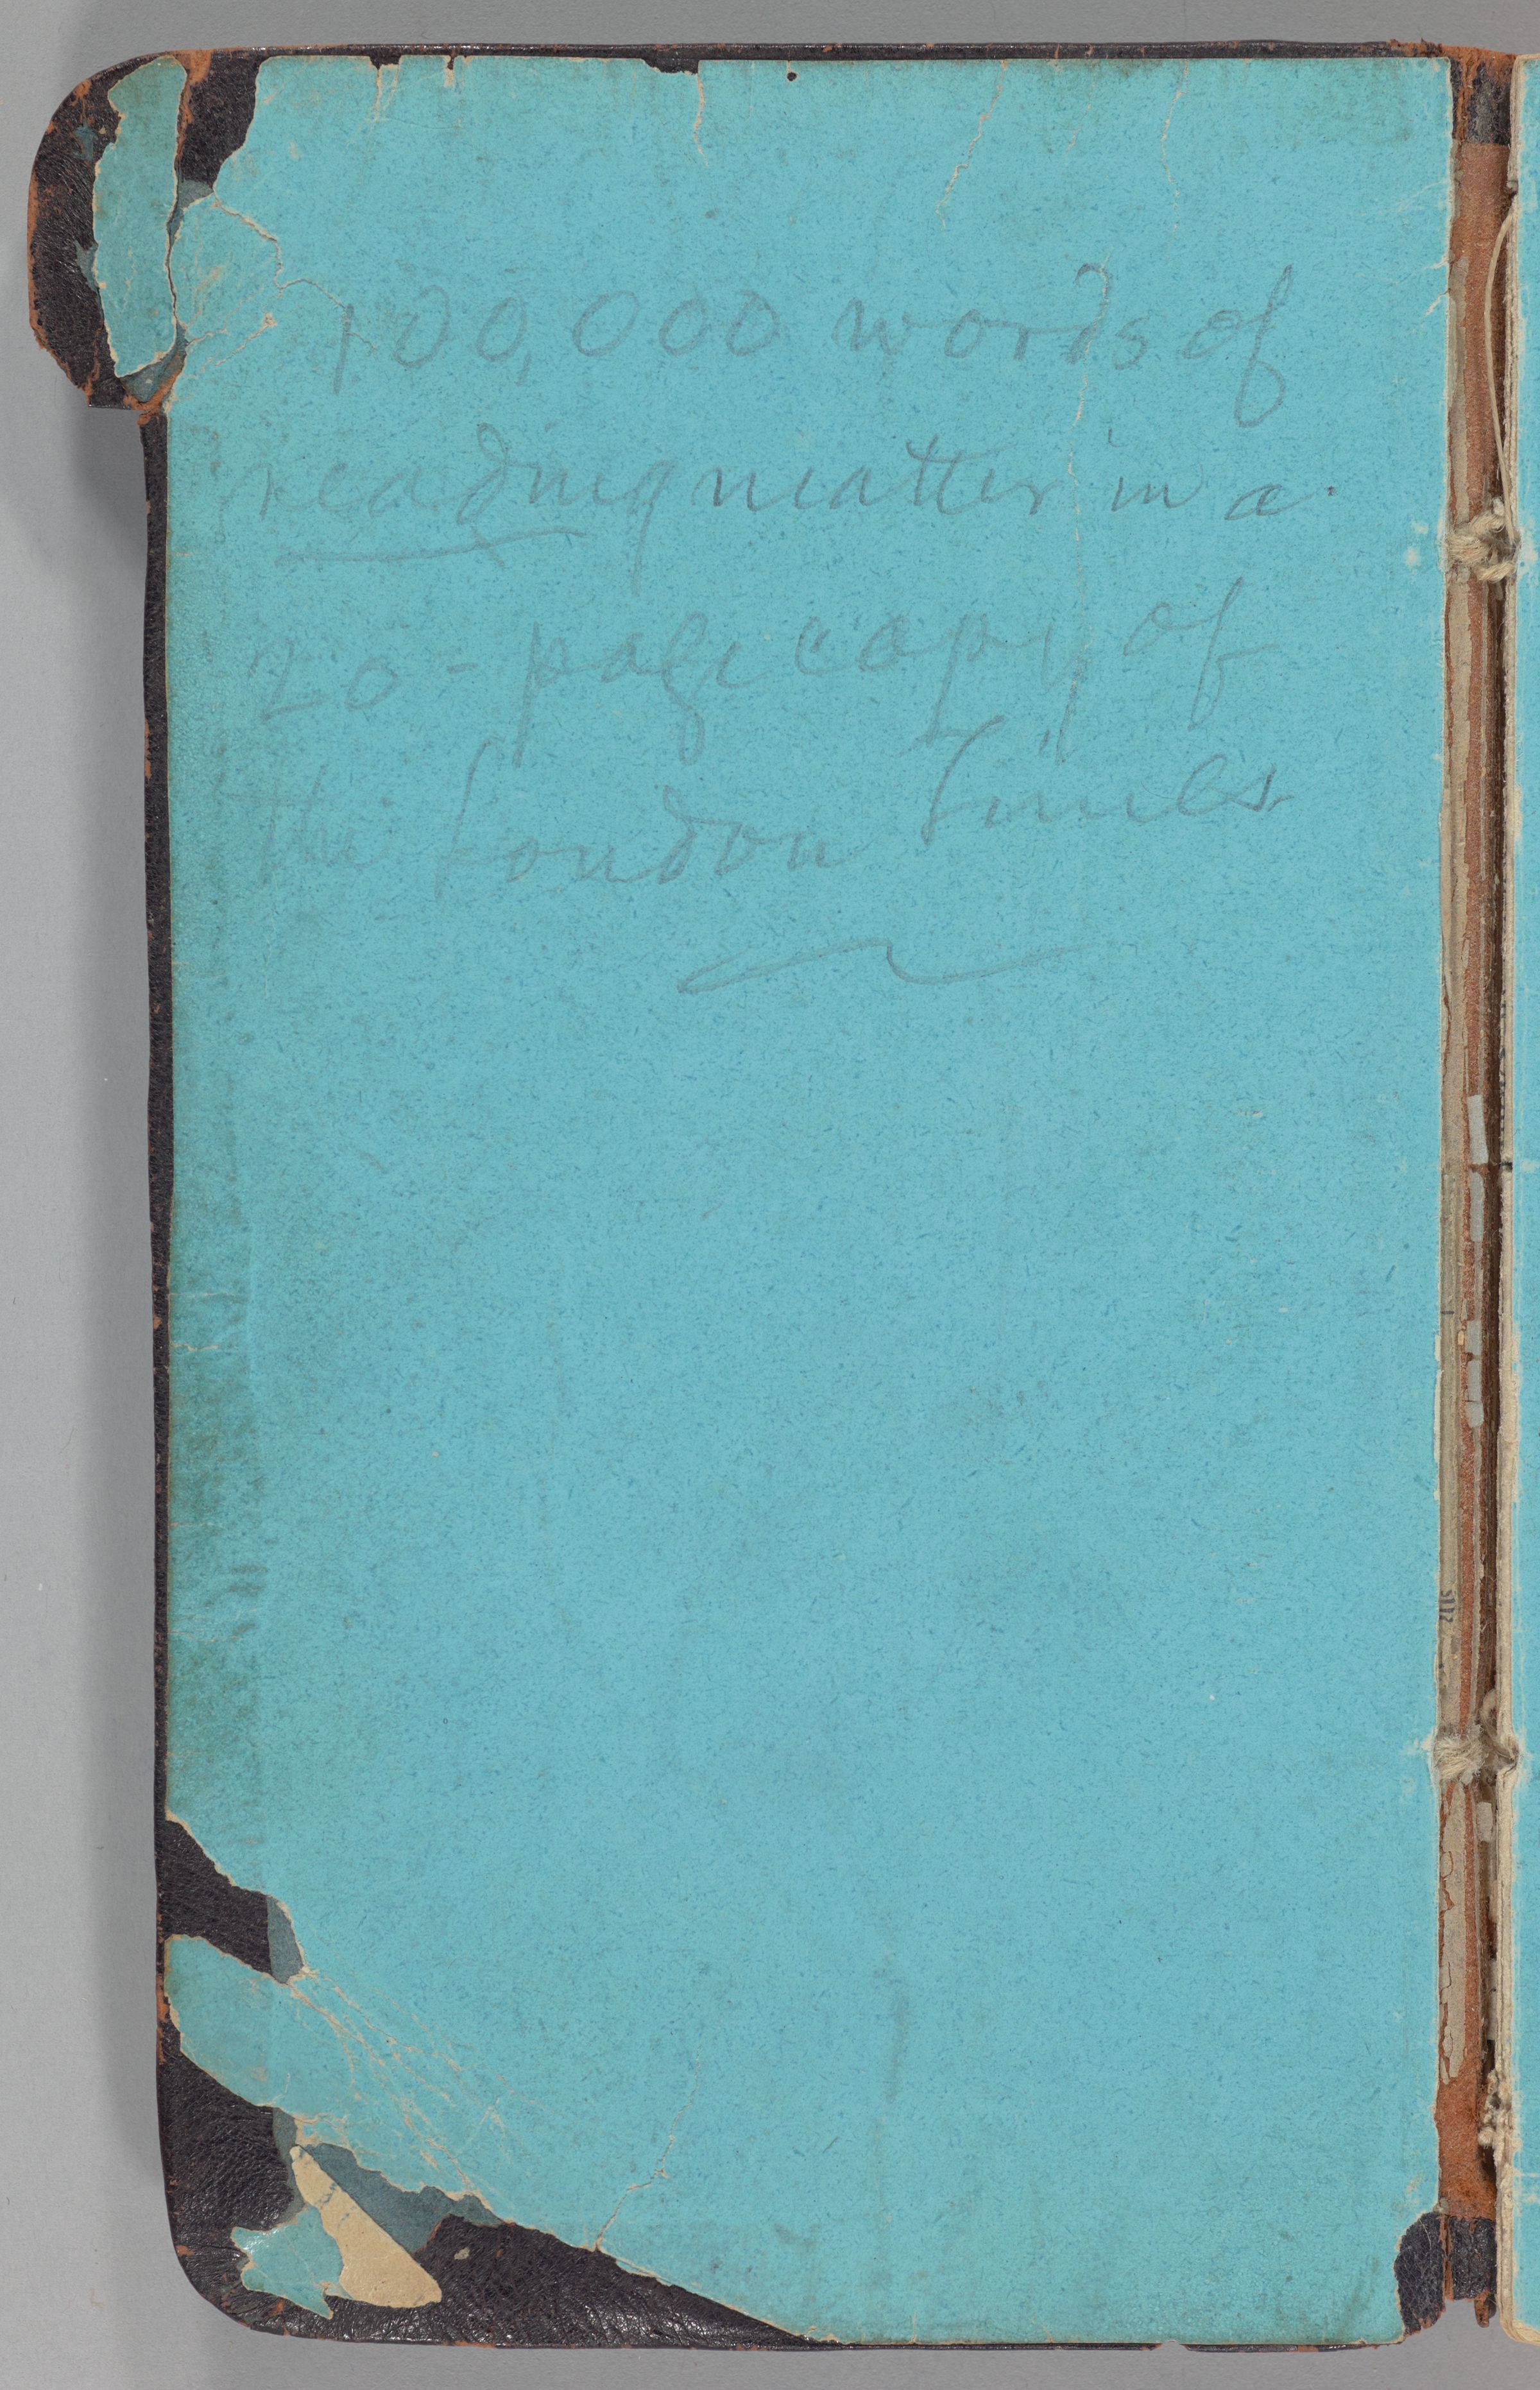 100,000 words of
reading matter in a
20-page copy of
the London Times